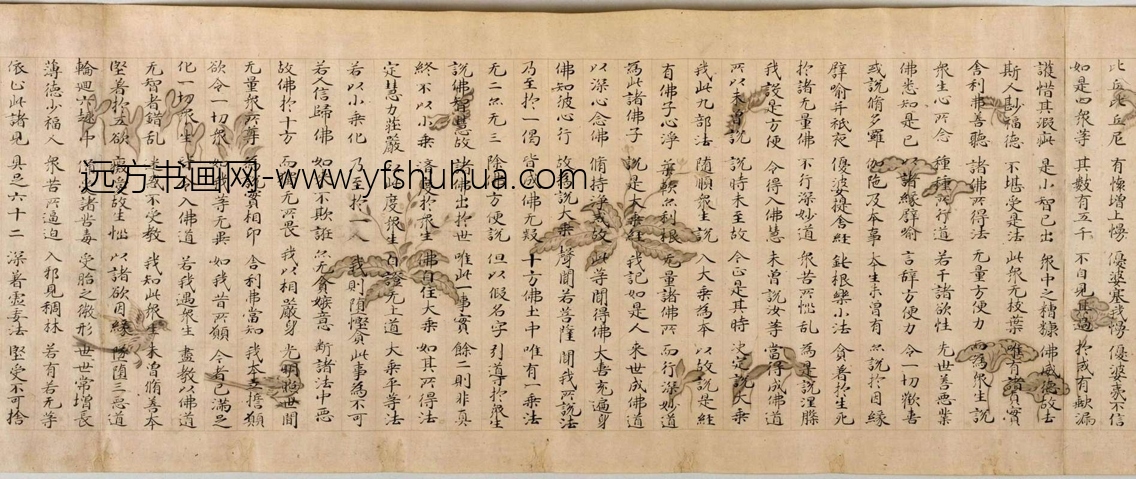 比丘比丘尼 有懷增上慢 優婆塞我慢 優婆夷不信
如是四眾等 其數有五千 不自見其過 於戒有缺漏
護惜其瑕疵 是小智已出 眾中之糟糠 佛威德故去
斯人尠福德 不堪受是法 此眾无枝葉 唯有諸貞實
舍利弗善聽 諸佛所得法 无量方便力 而為眾生說
眾生心所念 種種所行道 若干諸欲性 先世善惡業
佛悉知是已 以諸緣譬喻 言辭方便力 令一切歡喜
或說脩多羅 伽陀及本事 本生未曾有 亦說於因緣
譬喻并祇夜 優波提舍經 鈍根樂小法 貪著於生死
於諸无量佛 不行深妙道 眾苦所惱亂 為是說涅槃
我設是方便 令得入佛慧 未曾說汝等 當得成佛道
所以未曾說 說時未至故 今正是其時 決定說大乘
我此九部法 隨順眾生說 入大乘為本 以故說是經
有佛子心淨 柔軟亦利根 无量諸佛所 而行深妙道
為此諸佛子 說是大乘經 我記如是人 來世成佛道
以深心念佛 脩持淨戒故 此等聞得佛 大喜充遍身
佛知彼心行 故為說大乘 聲聞若菩薩 聞我所說法
乃至於一偈 皆成佛无疑 十方佛土中 唯有一乘法
无二亦无三 除佛方便說 但以假名字 引導於眾生
說佛智慧故 諸佛出於世 唯此一事實 餘二則非真
終不以小乘 濟度於眾生 佛自住大乘 如其所得法
定慧力莊嚴 以此度眾生 自證无上道 大乘平等法
若以小乘化 乃至於一人 我則墮慳貪 此事為不可
若人信歸佛 如來不欺誑 亦无貪嫉意 斷諸法中惡
故佛於十方 而獨无所畏 我以相嚴身 光明照世間
无量眾所尊 為說實相印 舍利弗當知 我本立誓願
欲令一切眾 如我等无異 如我昔所願 今者已滿足
化一切眾生 皆令入佛道 若我遇眾生 盡教以佛道
无智者錯亂 迷惑不受教 我知此眾生 未曾脩善本
堅著於五欲 癡愛故生惱 以諸欲因緣 墜墮三惡道
輪迴六趣中 備受諸苦毒 受胎之微形 世世常增長
薄德少福人 眾苦所逼迫 入邪見稠林 若有若无等
依止此諸見 具足六十二 深著虛妄法 堅受不可捨
远方书画网-www.yfshuhua.com